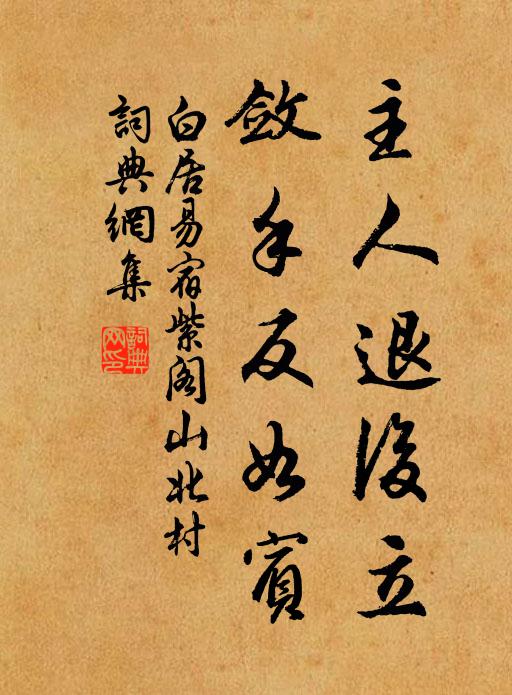 主人退後立
斂手反如賓
白居易宿紫閣山北村
詞典網集
詞典網印